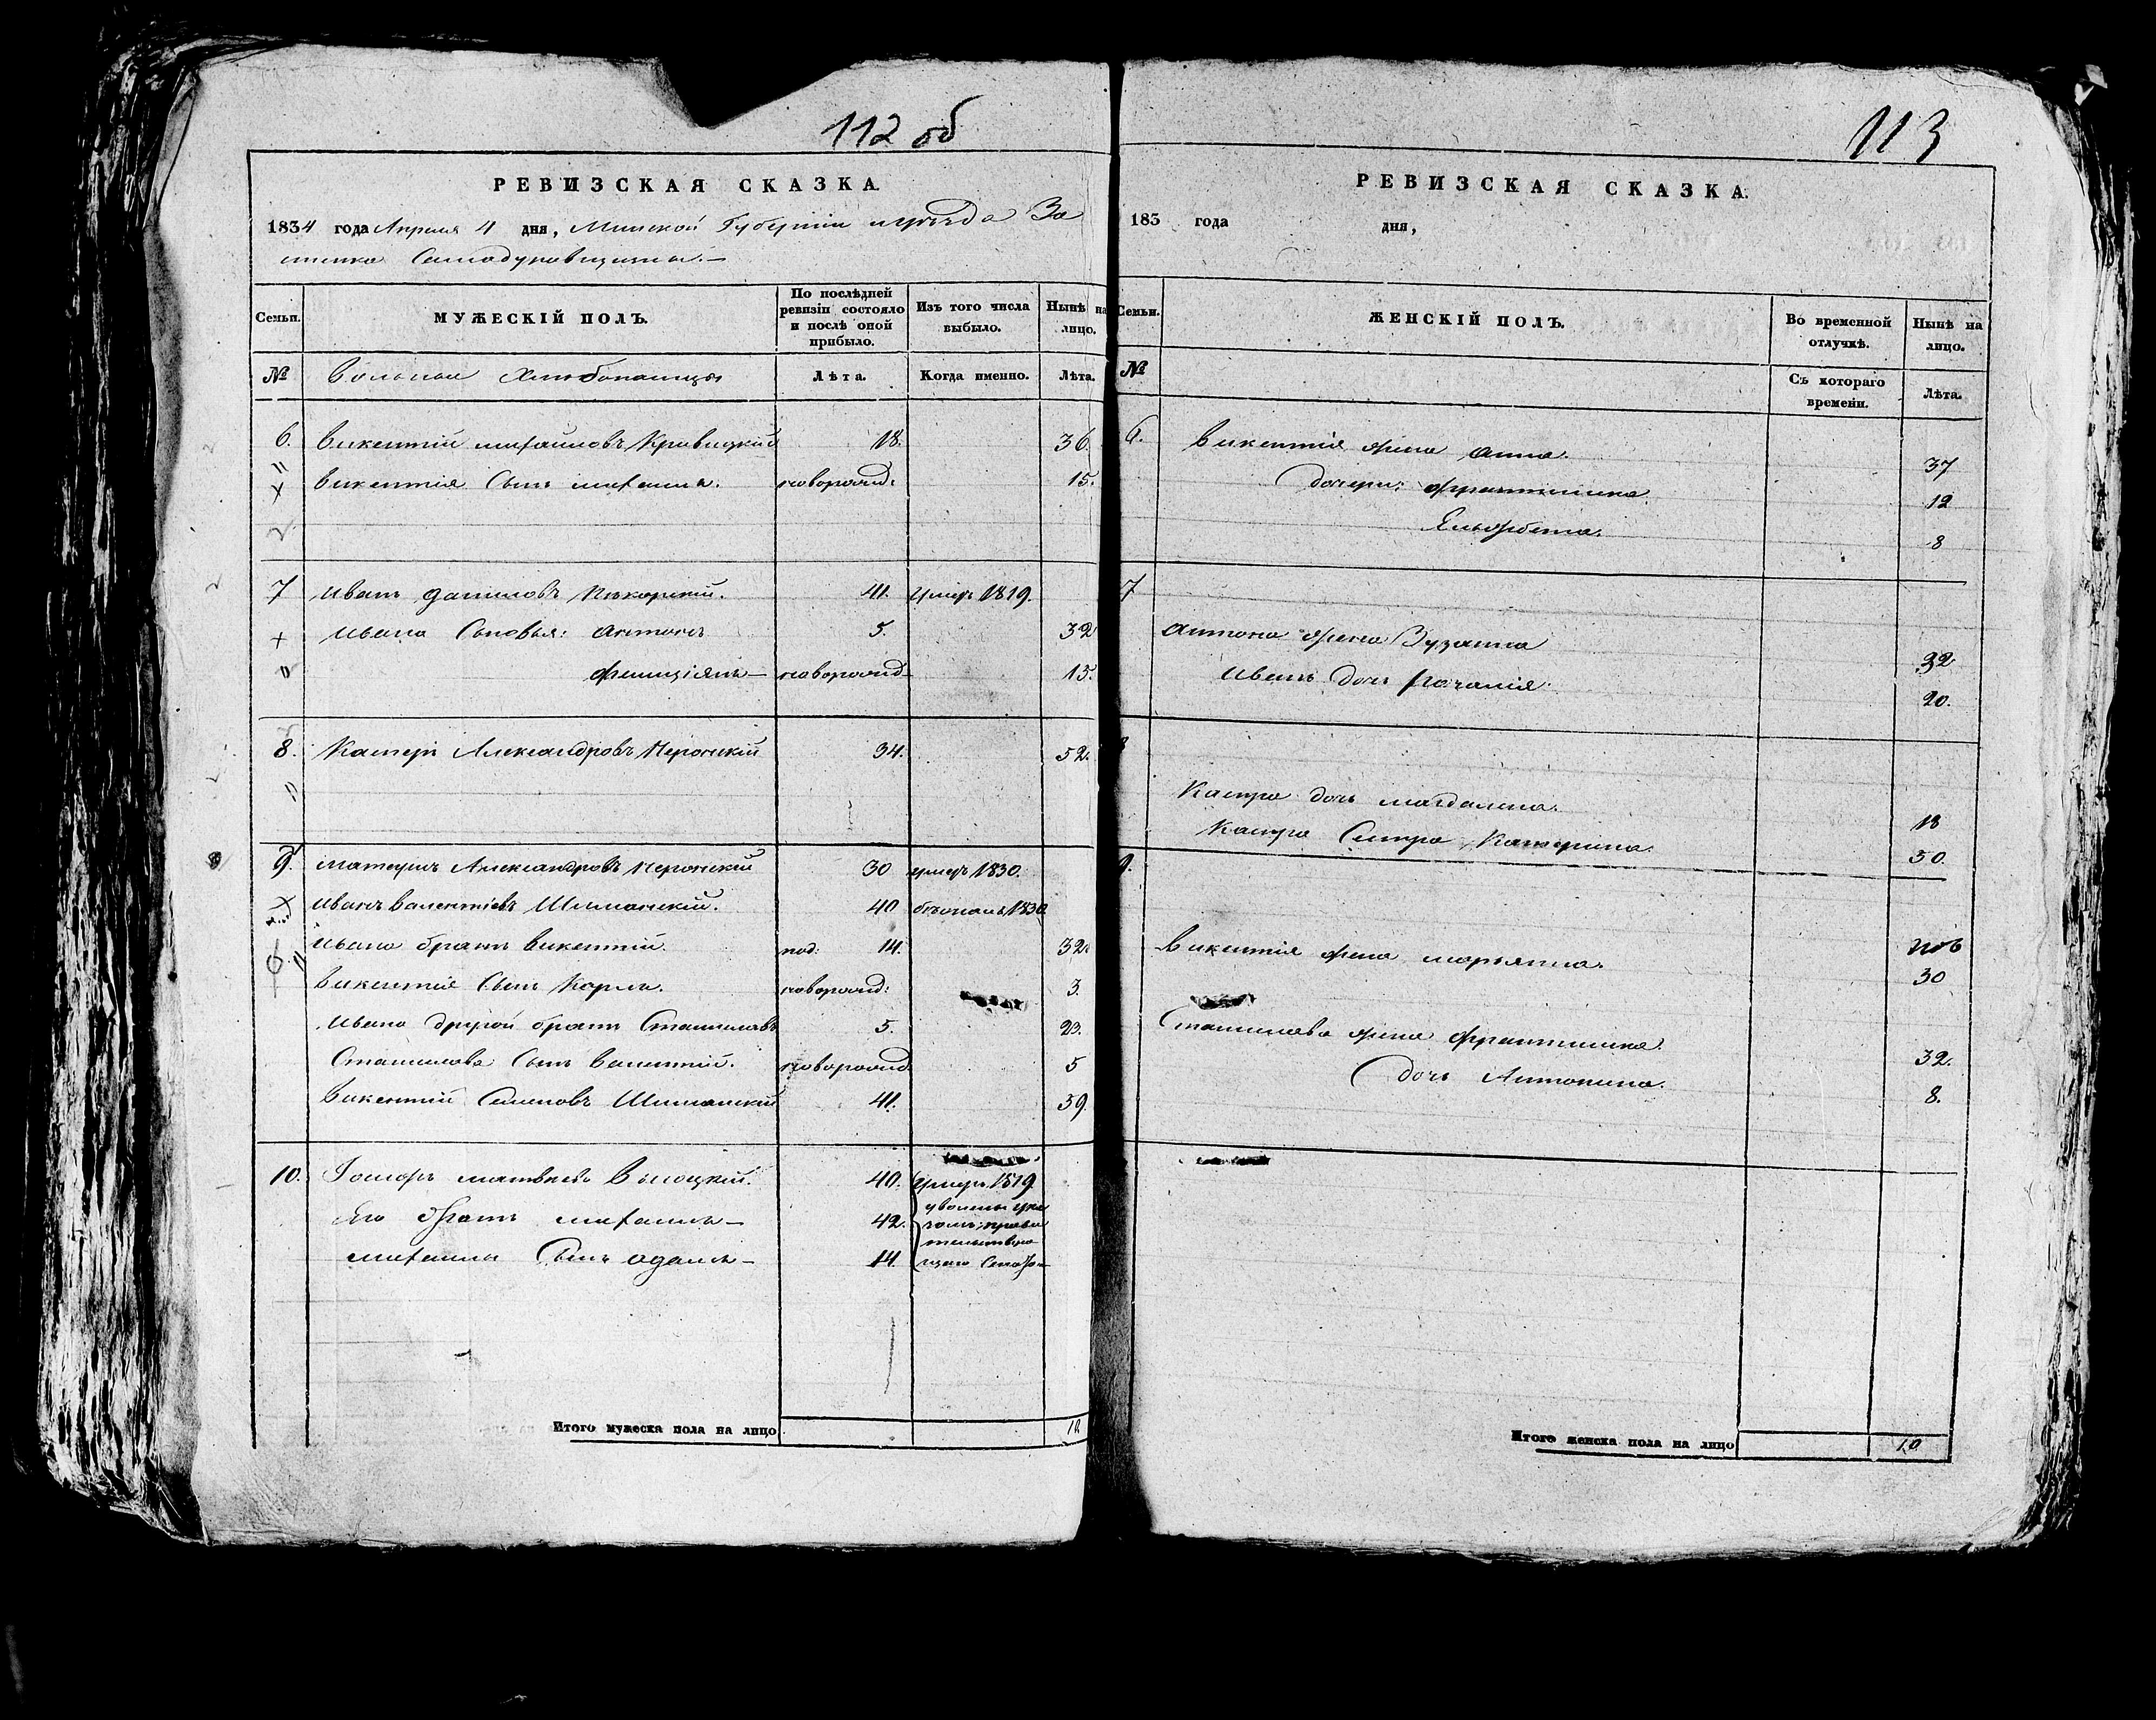 112 об
РЕВИЗСКАЯ СКАЗКА.
1834 года Апреля 4 дня, Минской Губерніи и уѣзда За
стенка
Семьи.
МУЖЕСКІЙ ПОЛЪ.
По послѣдней ревизіи состояло и послѣ оной прибыло.
Изъ того числа выбыло.
Нынѣ на лицо.
№ Вольные Хлебопашцы Лѣта. Когда именно. Лѣта.
6. Викентій михайловъ Кривицкій 18. 36.
Викентія Сынъ михаилъ. новорожд: 15.
7 Иванъ даниловъ 41. Умеръ 1819.
Ивана Сыновья: антонъ 5. 32
фелиціянъ — новорожд — 13.
8. Касперъ Александровъ Неронскій 34. 52.
9. матеушъ Александровъ Неронскій 30 умеръ 1830.
Иванъ валентіевъ Шиманскій. 40 1830
Ивана братъ викентій. под: 14. 32
Викентія Сынъ Карлъ. новорожд: 3.
Ивана другой братъ Станиславъ 5. 23.
Станислава Сынъ валентій. новорожд 5
Викентій Семеновъ Шиманскій 41. 39.
10. матвѣевъ Высоцкій. 40. Умеръ 1819
Его братъ михаилъ — 42. уволены ука
зомъ, прави
михаила Сынъ адамъ — 14. тельствую
щаго Сената
Итого мужеска пола на лицо 12
113
РЕВИЗСКАЯ СКАЗКА.
183 года дня,
Семьи.
ЖЕНСКІЙ ПОЛЪ.
Во временной отлучкѣ.
Нынѣ на лицо.
№
Съ котораго времени.
Лѣта.
6. Викентія жена анна. 37
дочери: франтишка 12
Ельжбета. 8
7
антона жена Зузанна 32
Ивана дочь 20.
8
Каспра дочь магдалена. 18
Каспра Сестра Катерина. 50.
9.
Викентія жена марьянна. 30
Станислава жена франтишка. 32.
дочь Антонина. 8.
Итого женска пола на лицо 10